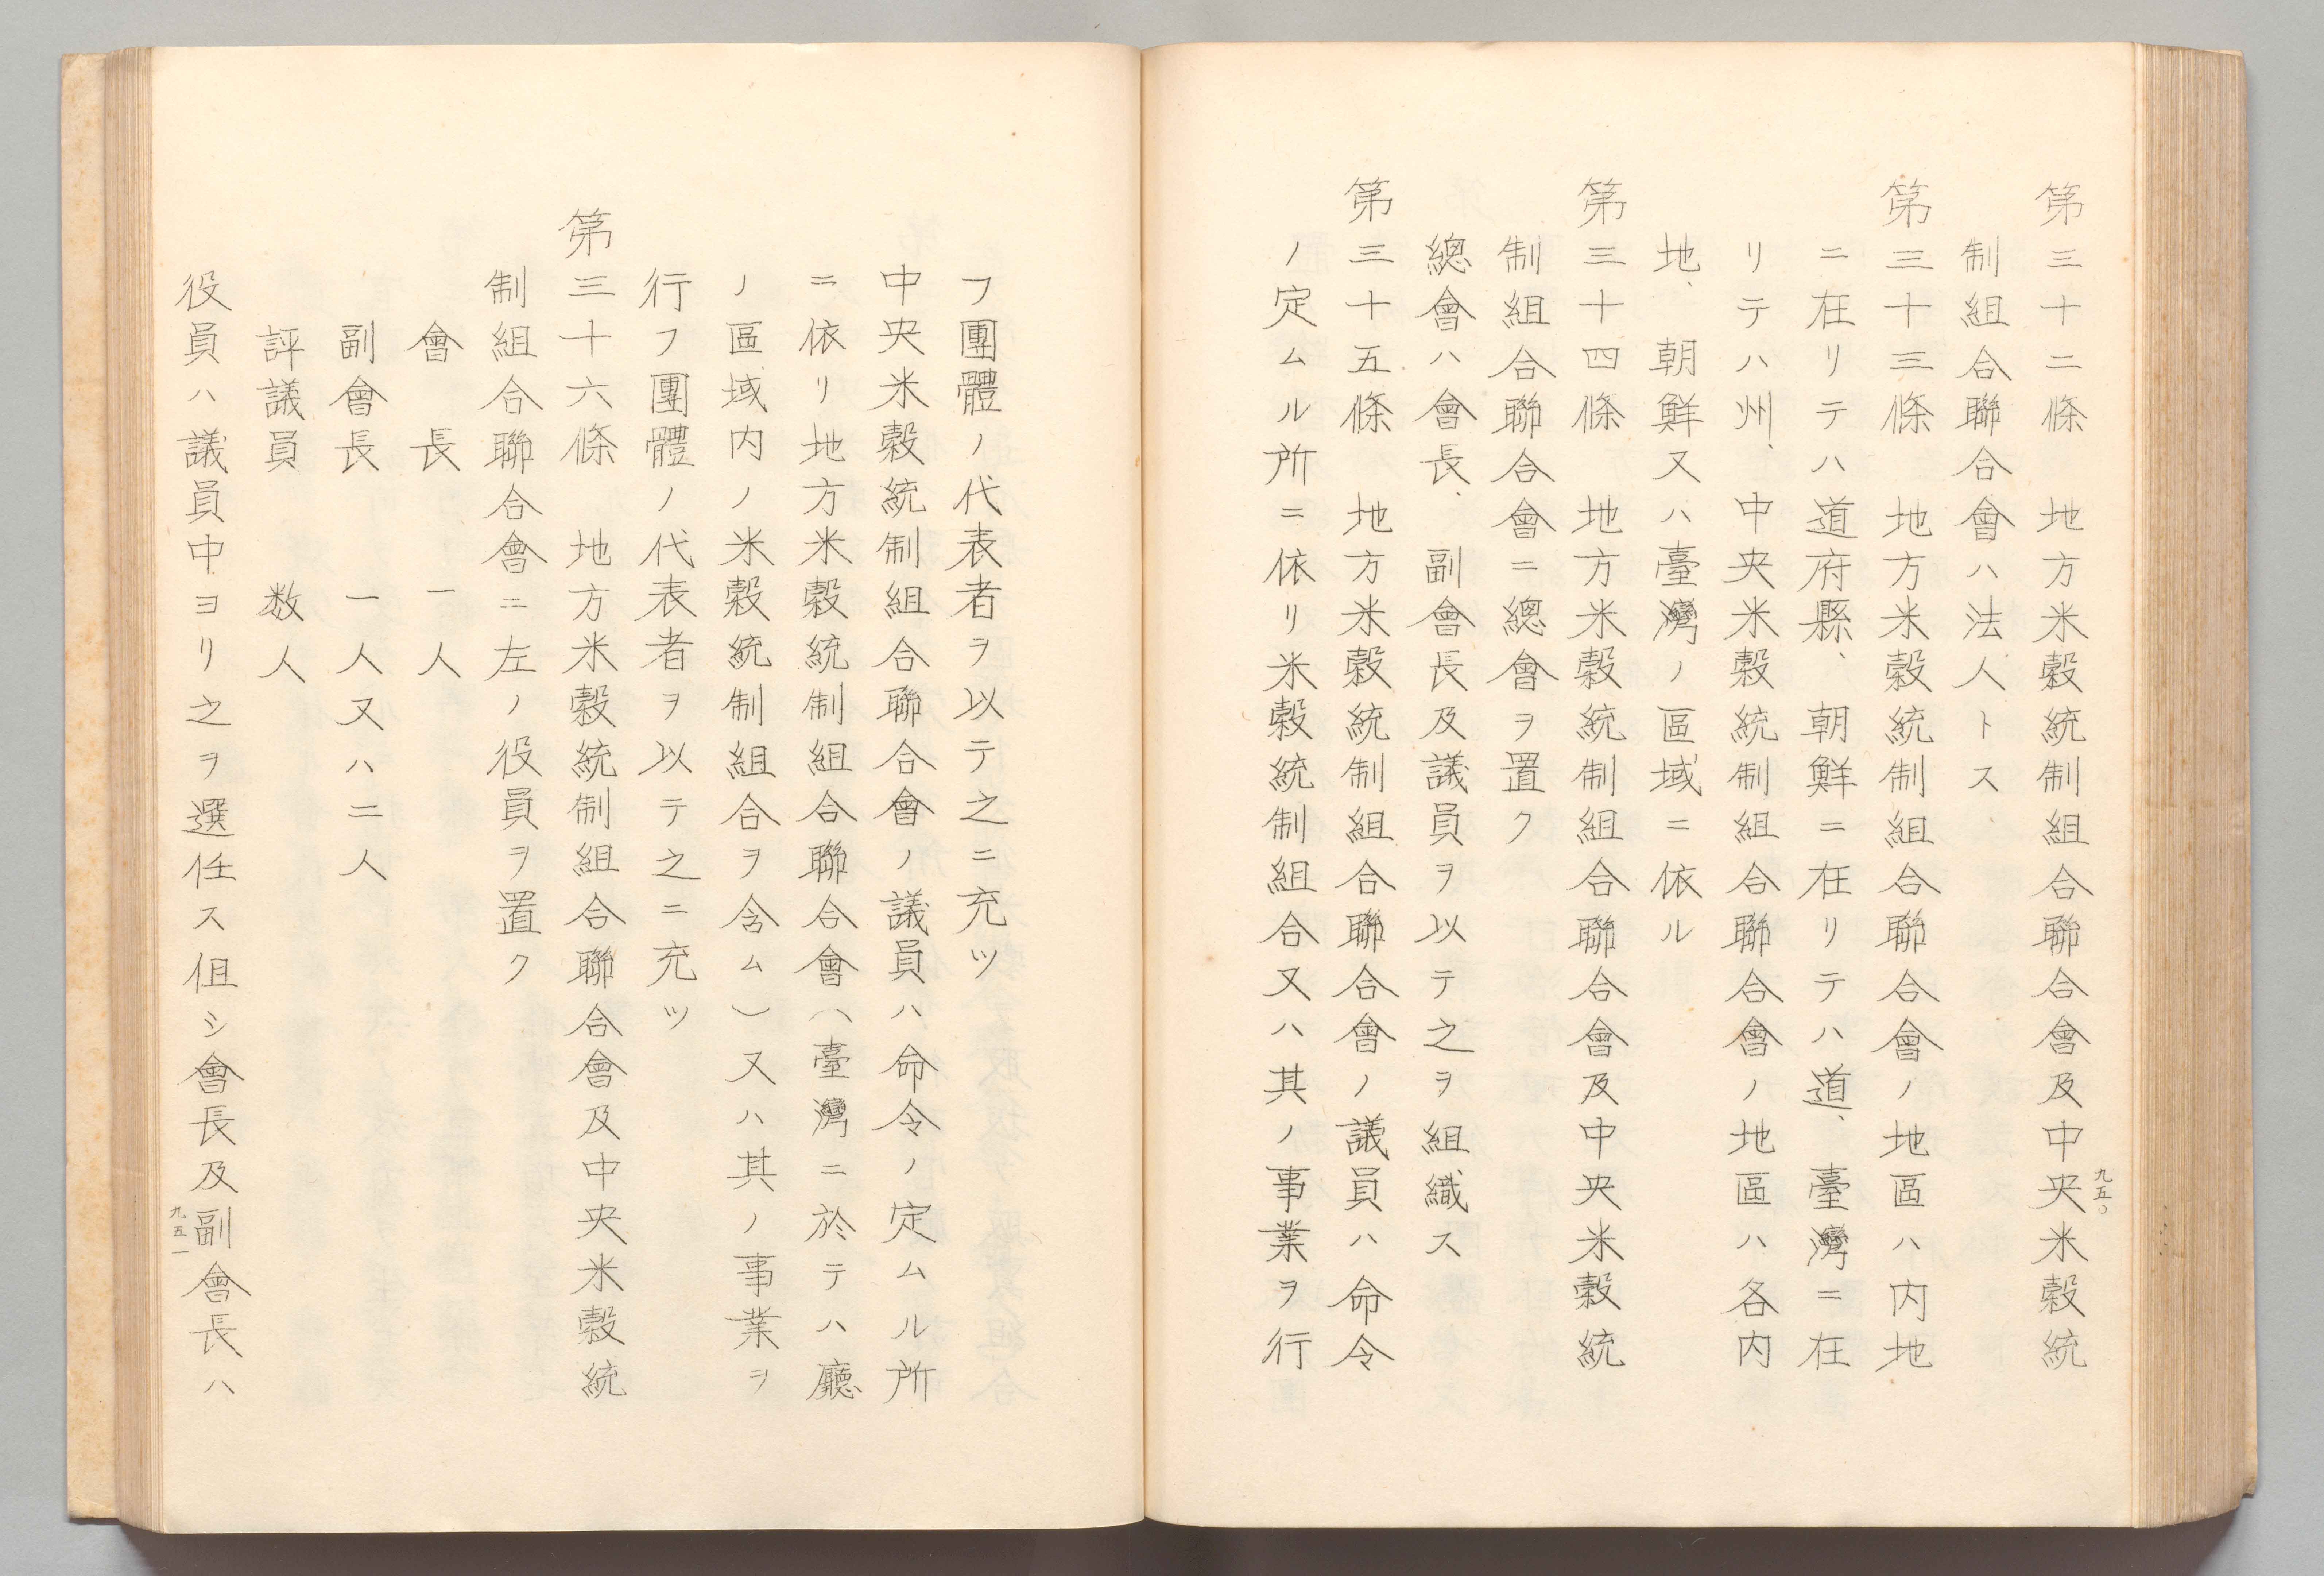 第三十二條　地方米穀統制組合聯合會及中央米穀統
制組合聯合會ハ法人トス
第三十三條　地方米穀統制組合聯合會ノ地區ハ内地
ニ在リテハ道府縣、朝鮮ニ在リテハ道、臺灣ニ在
リテハ州、中央米穀統制組合聯合會ノ地區ハ各内
地、朝鮮又ハ臺灣ノ區域ニ依ル
第三十四條　地方米穀統制組合聯合會及中央米穀統
制組合聯合會ニ總會ヲ置ク
總會ハ會長、副會長及議員ヲ以テ之ヲ組織ス
第三十五條　地方米穀統制組合聯合會ノ議員ハ命令
ノ定ムル所ニ依リ米穀統制組合又ハ其ノ事業ヲ行
九五〇
フ團體ノ代表者ヲ以テ之ニ充ツ
中央米穀統制組合聯合會ノ議員ハ命令ノ定ムル所
ニ依リ地方米穀統制組合聯合會（臺灣ニ於テハ廳
ノ區域内ノ米穀統制組合ヲ含ム）又ハ其ノ事業ヲ
行フ團體ノ代表者ヲ以テ之ニ充ツ
第三十六條　地方米穀統制組合聯合會及中央米穀統
制組合聯合會ニ左ノ役員ヲ置ク
會　長　　一人
副會長　　一人又ハ二人
評議員　　数人
役員ハ議員中ヨリ之ヲ選任ス但シ會長及副會長ハ
九五一